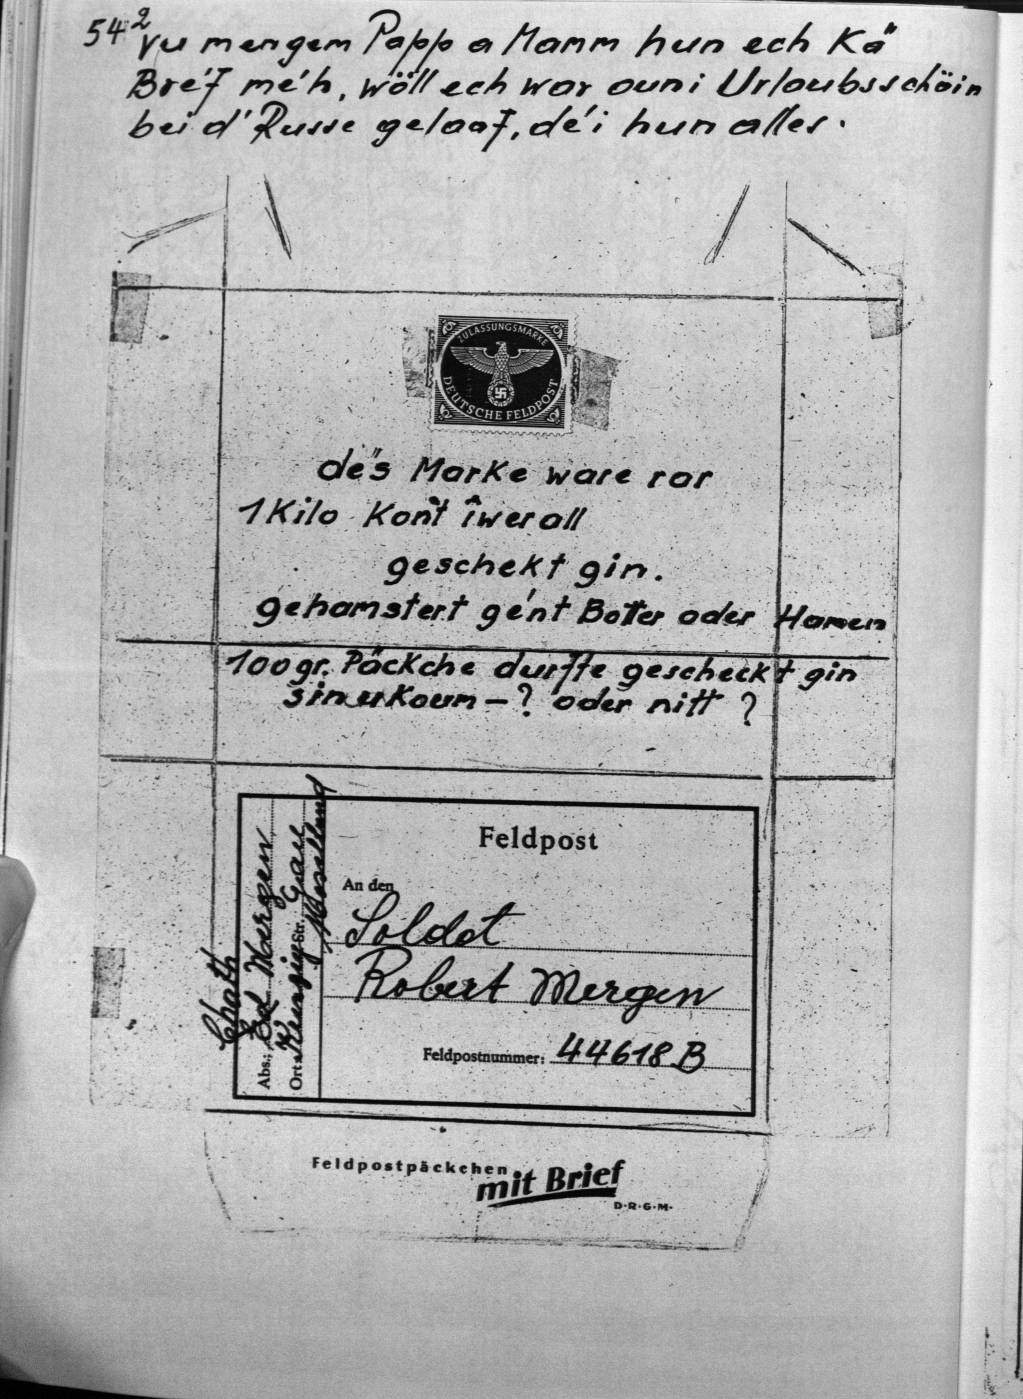 54²
Vu mengem Papp a Mamm hun ech Kä
Bréf méh, wöll ech war ouni Urlaubsschäin
bei d'Russe gelaaf, dé'i hun alles.
ZULASSUNGSMARKE
DEUTSCHE FELDPOST
dë's Marke ware rar
1 Kilo Kont îwerall
geschekt gin.
gehamstert gént Botter oder Hamen
100gr. Päckche durfte gescheckt gin
sin ukoum - ? oder nitt ?
Feldpost
An den
Soldat
Robert Mergen
Feldpostnummer: 44618 B
Abs.: Ed Mergen
Ort: Str.
Gau
Moselland
Feldpostpäckchen
mit Brief
D·R·G·M·